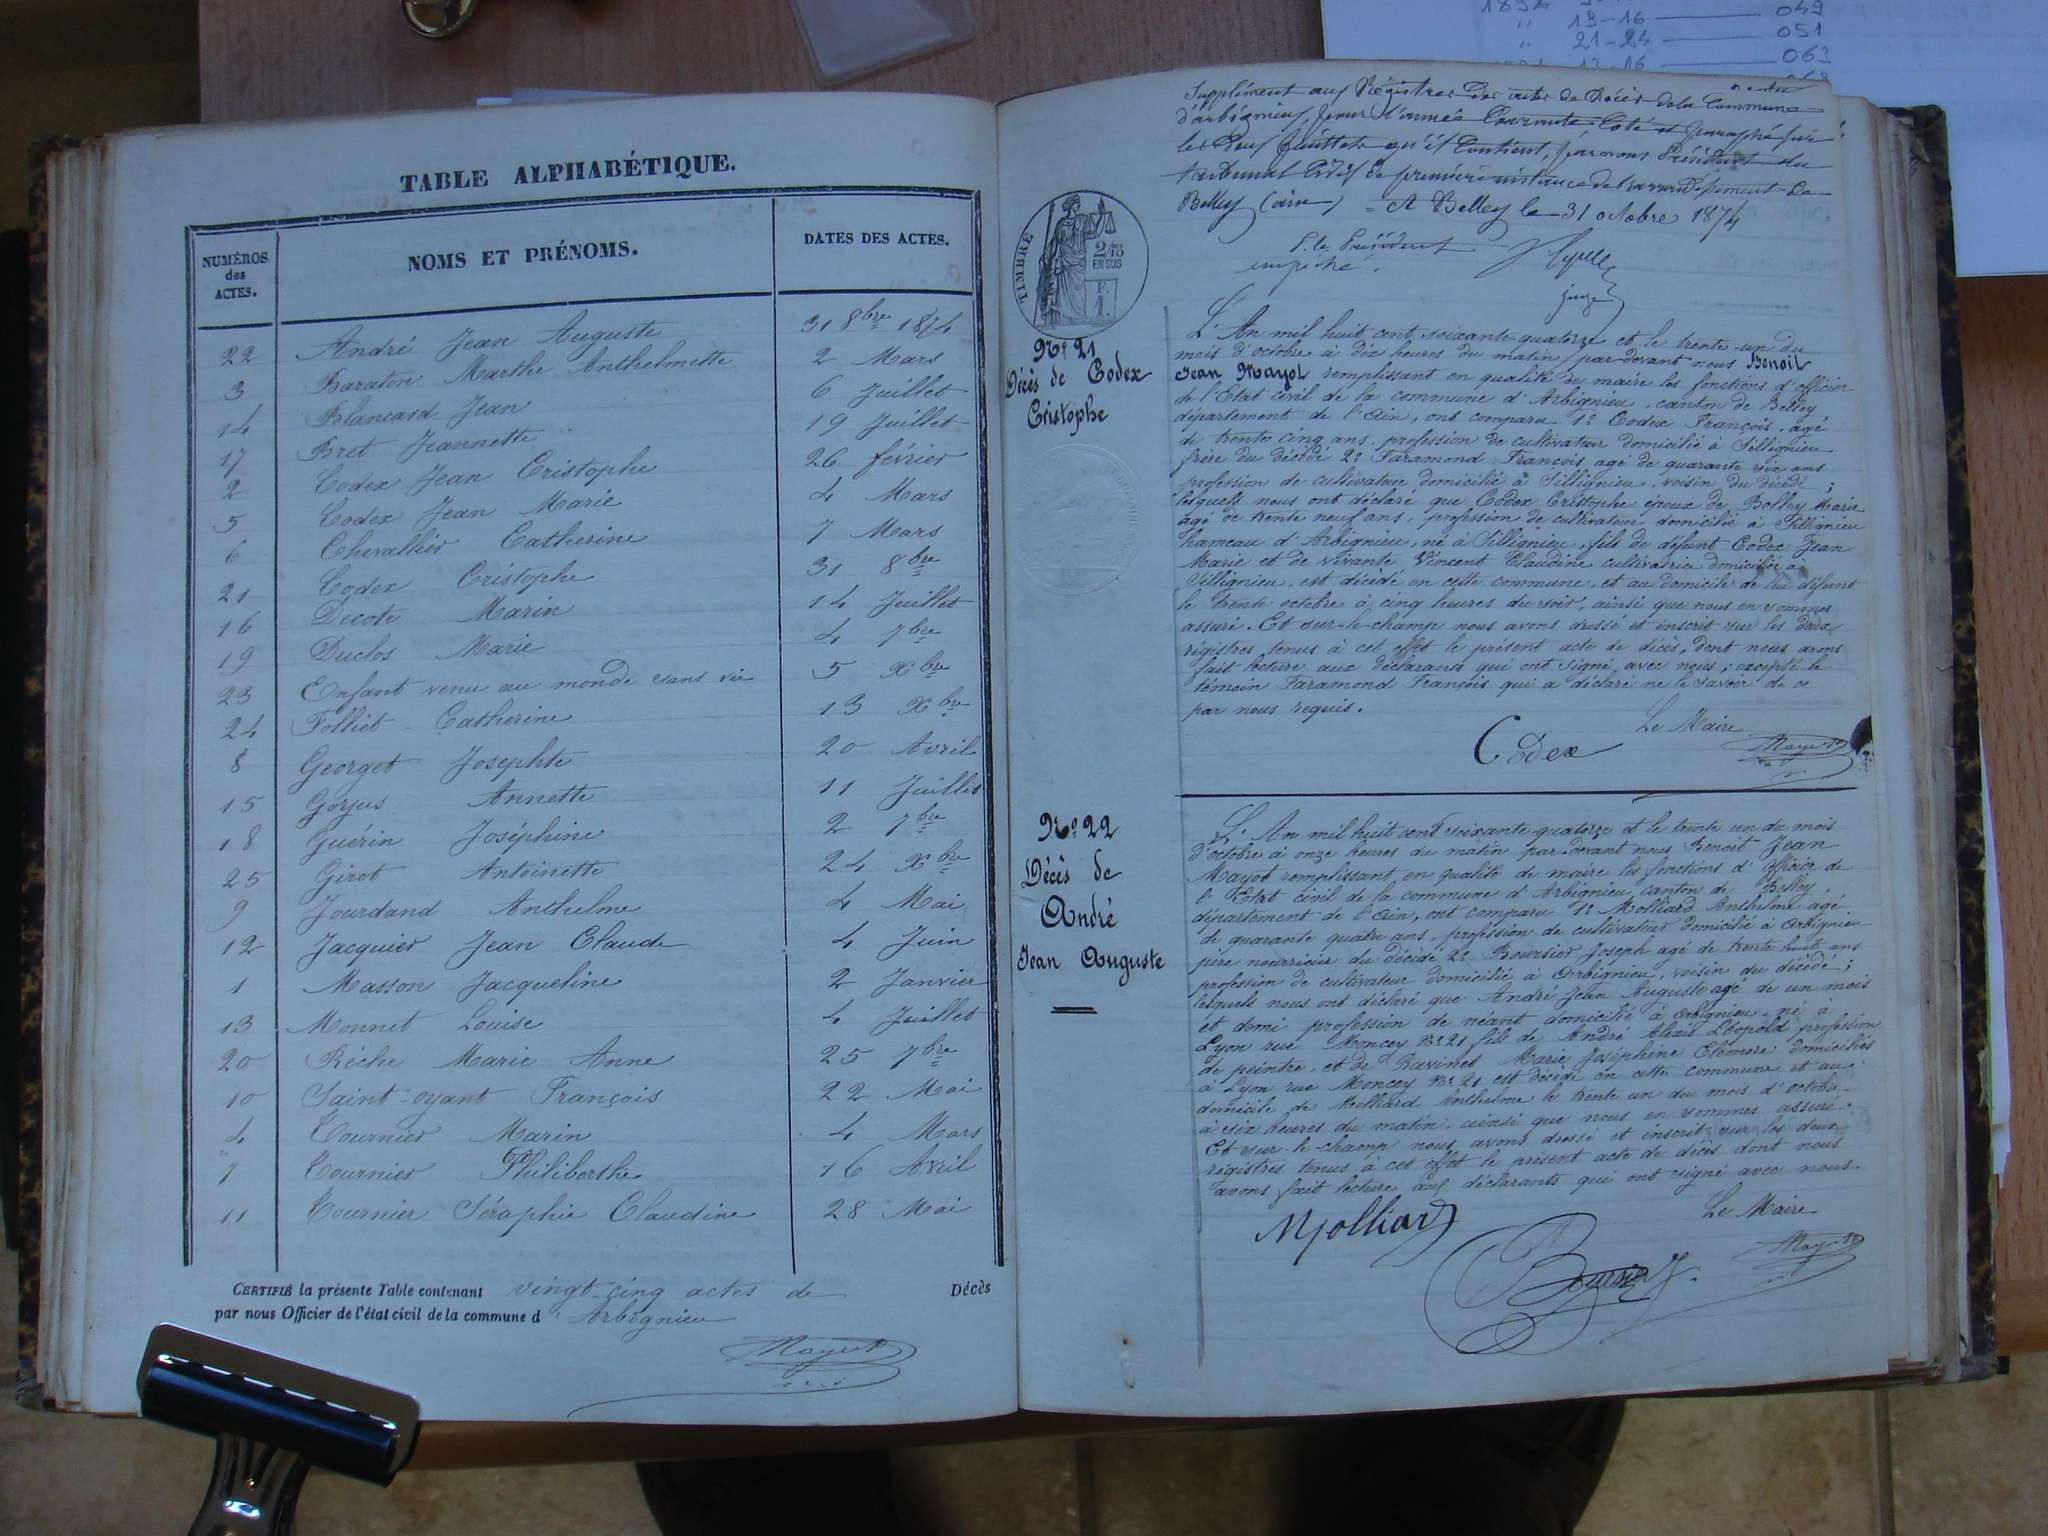 1892
" 13-16 —— 049
" 21-24 —— 051
13-16 —— 063
TABLE ALPHABÉTIQUE.
NUMÉROS des ACTES. NOMS ET PRÉNOMS. DATES DES ACTES.
22 André Jean Auguste 31 8bre 1874
3 Baraton Marthe Anthelmette 2 Mars
14 Blancard Jean 6 Juillet
17 Bret Jeannette 19 Juillet
2 Codex Jean Cristophe 26 février
5 Codex Jean Marie 4 Mars
6 Chevallier Catherine 7 Mars
21 Codex Cristophe 31 8bre
16 Decote Marin 14 Juillet
19 Duclos Marie 4 7bre
23 Enfant venu au monde sans vie 5 Xbre
24 Folliet Catherine 13 Xbre
8 Georget Josephte 20 Avril
15 Gojus Annette 11 Juillet
18 Guérin Joséphine 2 7bre
25 Girot Antoinette 24 Xbre
9 Jourdand Anthelme 4 Mai
12 Jacquier Jean Claude 4 Juin
1 Masson Jacqueline 2 Janvier
13 Monnet Louise 4 Juillet
20 Rèche Marie Anne 25 7bre
10 Saint-oyant François 22 Mai
4 Tournier Marin 4 Mars
7 Tournier Philiberthe 16 Avril
11 Tournier Séraphie Claudine 28 Mai
CERTIFIÉ la présente Table contenant vingt-cinq actes de Décès
par nous Officier de l'état civil de la commune d'Arbignieu
Supplément aux Régistres des actes de Décès de la Commune
d'arbignieu, pour l'année Courante Coté et paraphé sur
les Deux feuillets qu'il Contient, par nous Président du
tribunal Civil de première instance de l'arrondissement de
Belley (ain) = A Belley le 31 octobre 1874
P. le Président
empêché.
juge
TIMBRE
2/10 EN SUS
F. 1
No 21
Décès de Codex
Cristophe
L'An mil huit cent soixante-quatorze et le trente-un du
mois d'octobre à dix heures du matin, par-devant nous Benoit
Jean Mayot remplissant en qualité de maire les fonctions d'officier
de l'Etat civil de la commune d'Arbignieu, canton de Belley,
département de l'Ain, ont comparu 1o Codex François, agé
de trente cinq ans, profession de cultivateur domicilié à Sillignieu
frère du décédé 2o Faramond François agé de quarante six ans
profession de cultivateur domicilié à Sillignieu, voisin du décédé;
lesquels nous ont déclaré que Codex Cristophe époux de Bolley Marie
agé de trente neuf ans, profession de cultivateur domicilié à Sillignieu
hameau d'Arbignieu, né à Sillignieu, fils de défunt Codex Jean
Marie et de vivante Vincent Claudine cultivatrice domiciliée à
Sillignieu, est décédé en cette commune, et au domicile de lui défunt
le trente octobre à cinq heures du soir, ainsi que nous en sommes
assuré. Et sur-le-champ nous avons dressé et inscrit sur les deux
régistres tenus à cet effet le présent acte de décès, dont nous avons
fait lecture aux déclarants qui ont signé avec nous; excepté le
témoin Faramond François qui a déclaré ne le savoir de ce
par nous requis.
Le Maire
Codex
No 22
Décès de
André
Jean Auguste
L'An mil huit cent soixante-quatorze et le trente un du mois
d'octobre à onze heures du matin par-devant nous Benoit Jean
Mayot remplissant en qualité de maire les fonctions d'officier de
l'Etat civil de la commune d'Arbignieu canton de Belley,
département de l'Ain, ont comparu 1o Molliard Anthelme agé
de quarante quatre ans, profession de cultivateur domicilié à Arbignieu
père nourricier du décédé 2o Boursier Joseph agé de trente huit ans
profession de cultivateur domicilié à Arbignieu, voisin du décédé;
lesquels nous ont déclaré que André Jean Auguste agé de un mois
et demi profession de néant domicilié à Arbignieu né à
Lyon rue Moncey No 21 fils de André Alexis Léopold profession
de peintre, et de Ravinet Marie Joséphine Eléonore domiciliés
à Lyon rue Moncey No 21 est décédé en cette commune et au
domicile de Molliard Anthelme le trente un du mois d'octobre
à six heures du matin, ainsi que nous en sommes assuré.
Et sur-le-champ nous avons dressé et inscrit sur les deux
régistres tenus à cet effet le présent acte de décès dont nous
avons fait lecture aux déclarants qui ont signé avec nous.
Le Maire
Molliard